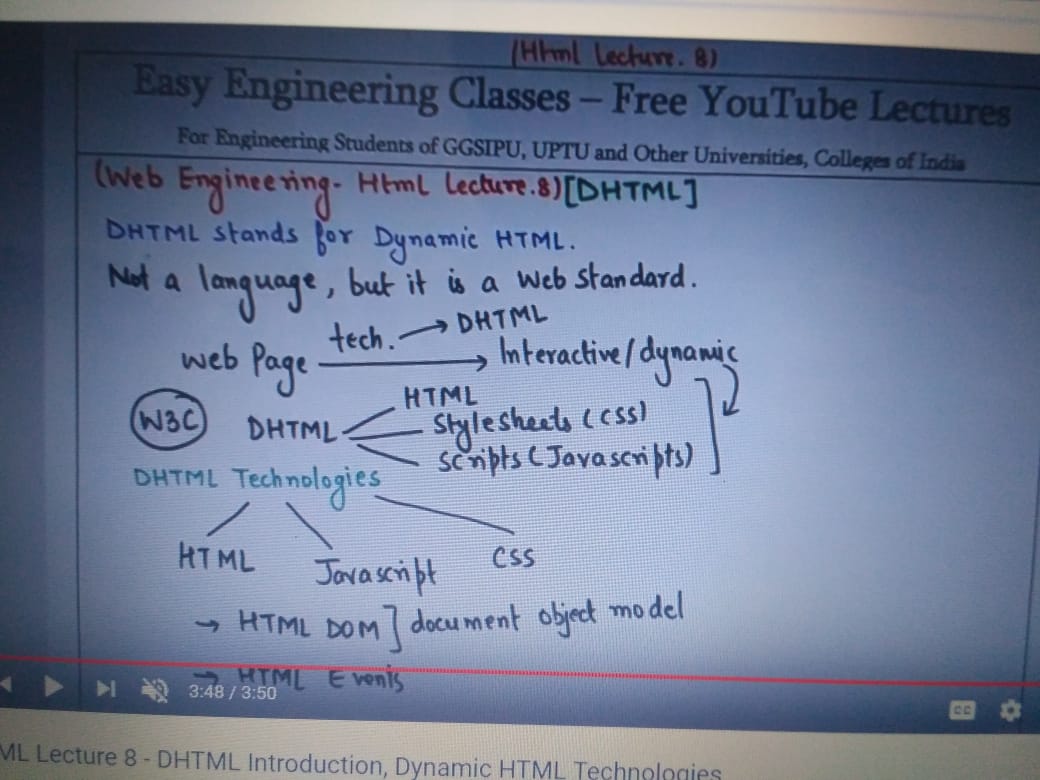 (Html Lecture. 8)
Easy Engineering Classes – Free YouTube Lectures
For Engineering Students of GGSIPU, UPTU and Other Universities, Colleges of India
(Web Engineering- Html Lecture.8) [DHTML]
DHTML stands for Dynamic HTML.
Not a language, but it is a web standard.
tech. → DHTML
web Page → Interactive/dynamic
HTML
W3C DHTML Stylesheets (CSS)
Scripts (Javascripts)
DHTML Technologies
HTML Javascript CSS
→ HTML DOM] document object model
→ HTML Events
3:48 / 3:50
CC
ML Lecture 8 - DHTML Introduction, Dynamic HTML Technologies